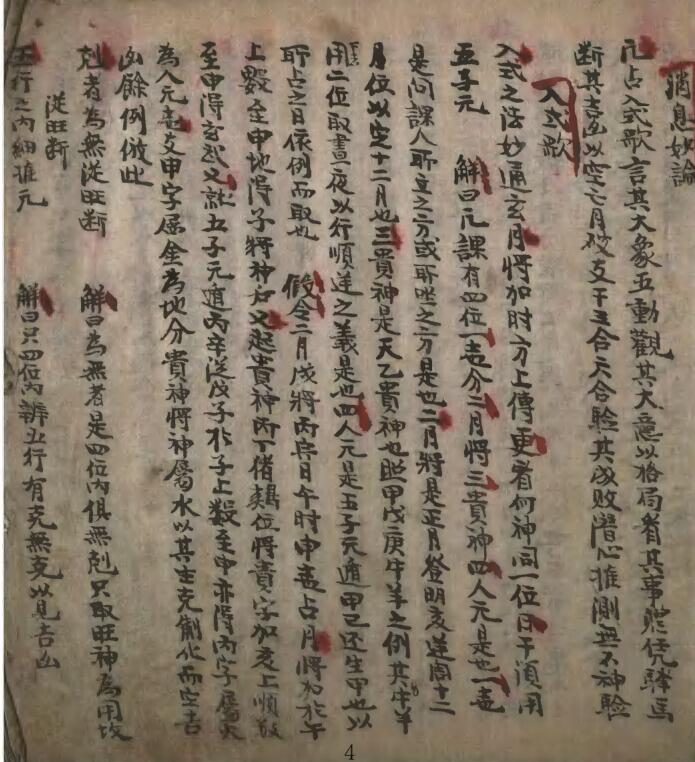 消息妙論
凢占入式歌言其大象五動觀其大意以格局看其事體凭驛馬
断其吉凶以空亡月破支干三合六合驗其成敗潛心推測無不神驗
入式歌
入式之法妙通玄月將加时方上傳更看何神同一位日干須用
五子元 解曰凢課有四位一地分二月將三貴神四人元是也一地
是问課人所立之方或所坐之方是也二月將是正月登明亥逆周十二
月位以定十二月也三貴神是天乙貴神也照甲戊庚牛羊之例其牛羊
用二位取晝夜以行順逆之義是也四人元是五子元遁甲己还生甲也以
所占之日依例而取也 假令二月戌將丙辛日午时申地占月將加於午
上數至申地得子將神后又起貴神丙丁猪鷄位將貴字加亥上順數
至申得玄武又就五子元遁丙辛從戊子於子上數至申亦得丙字屬火
為人元地支申字属金為地分貴神將神屬水以其生克制化而定吉
凶餘例倣此
尅者為無從旺断 解曰為無者是四位内俱無尅只取旺神為用故
從旺断
五行之内細推元 解曰只四位内辨五行有克無克以見吉凶
4